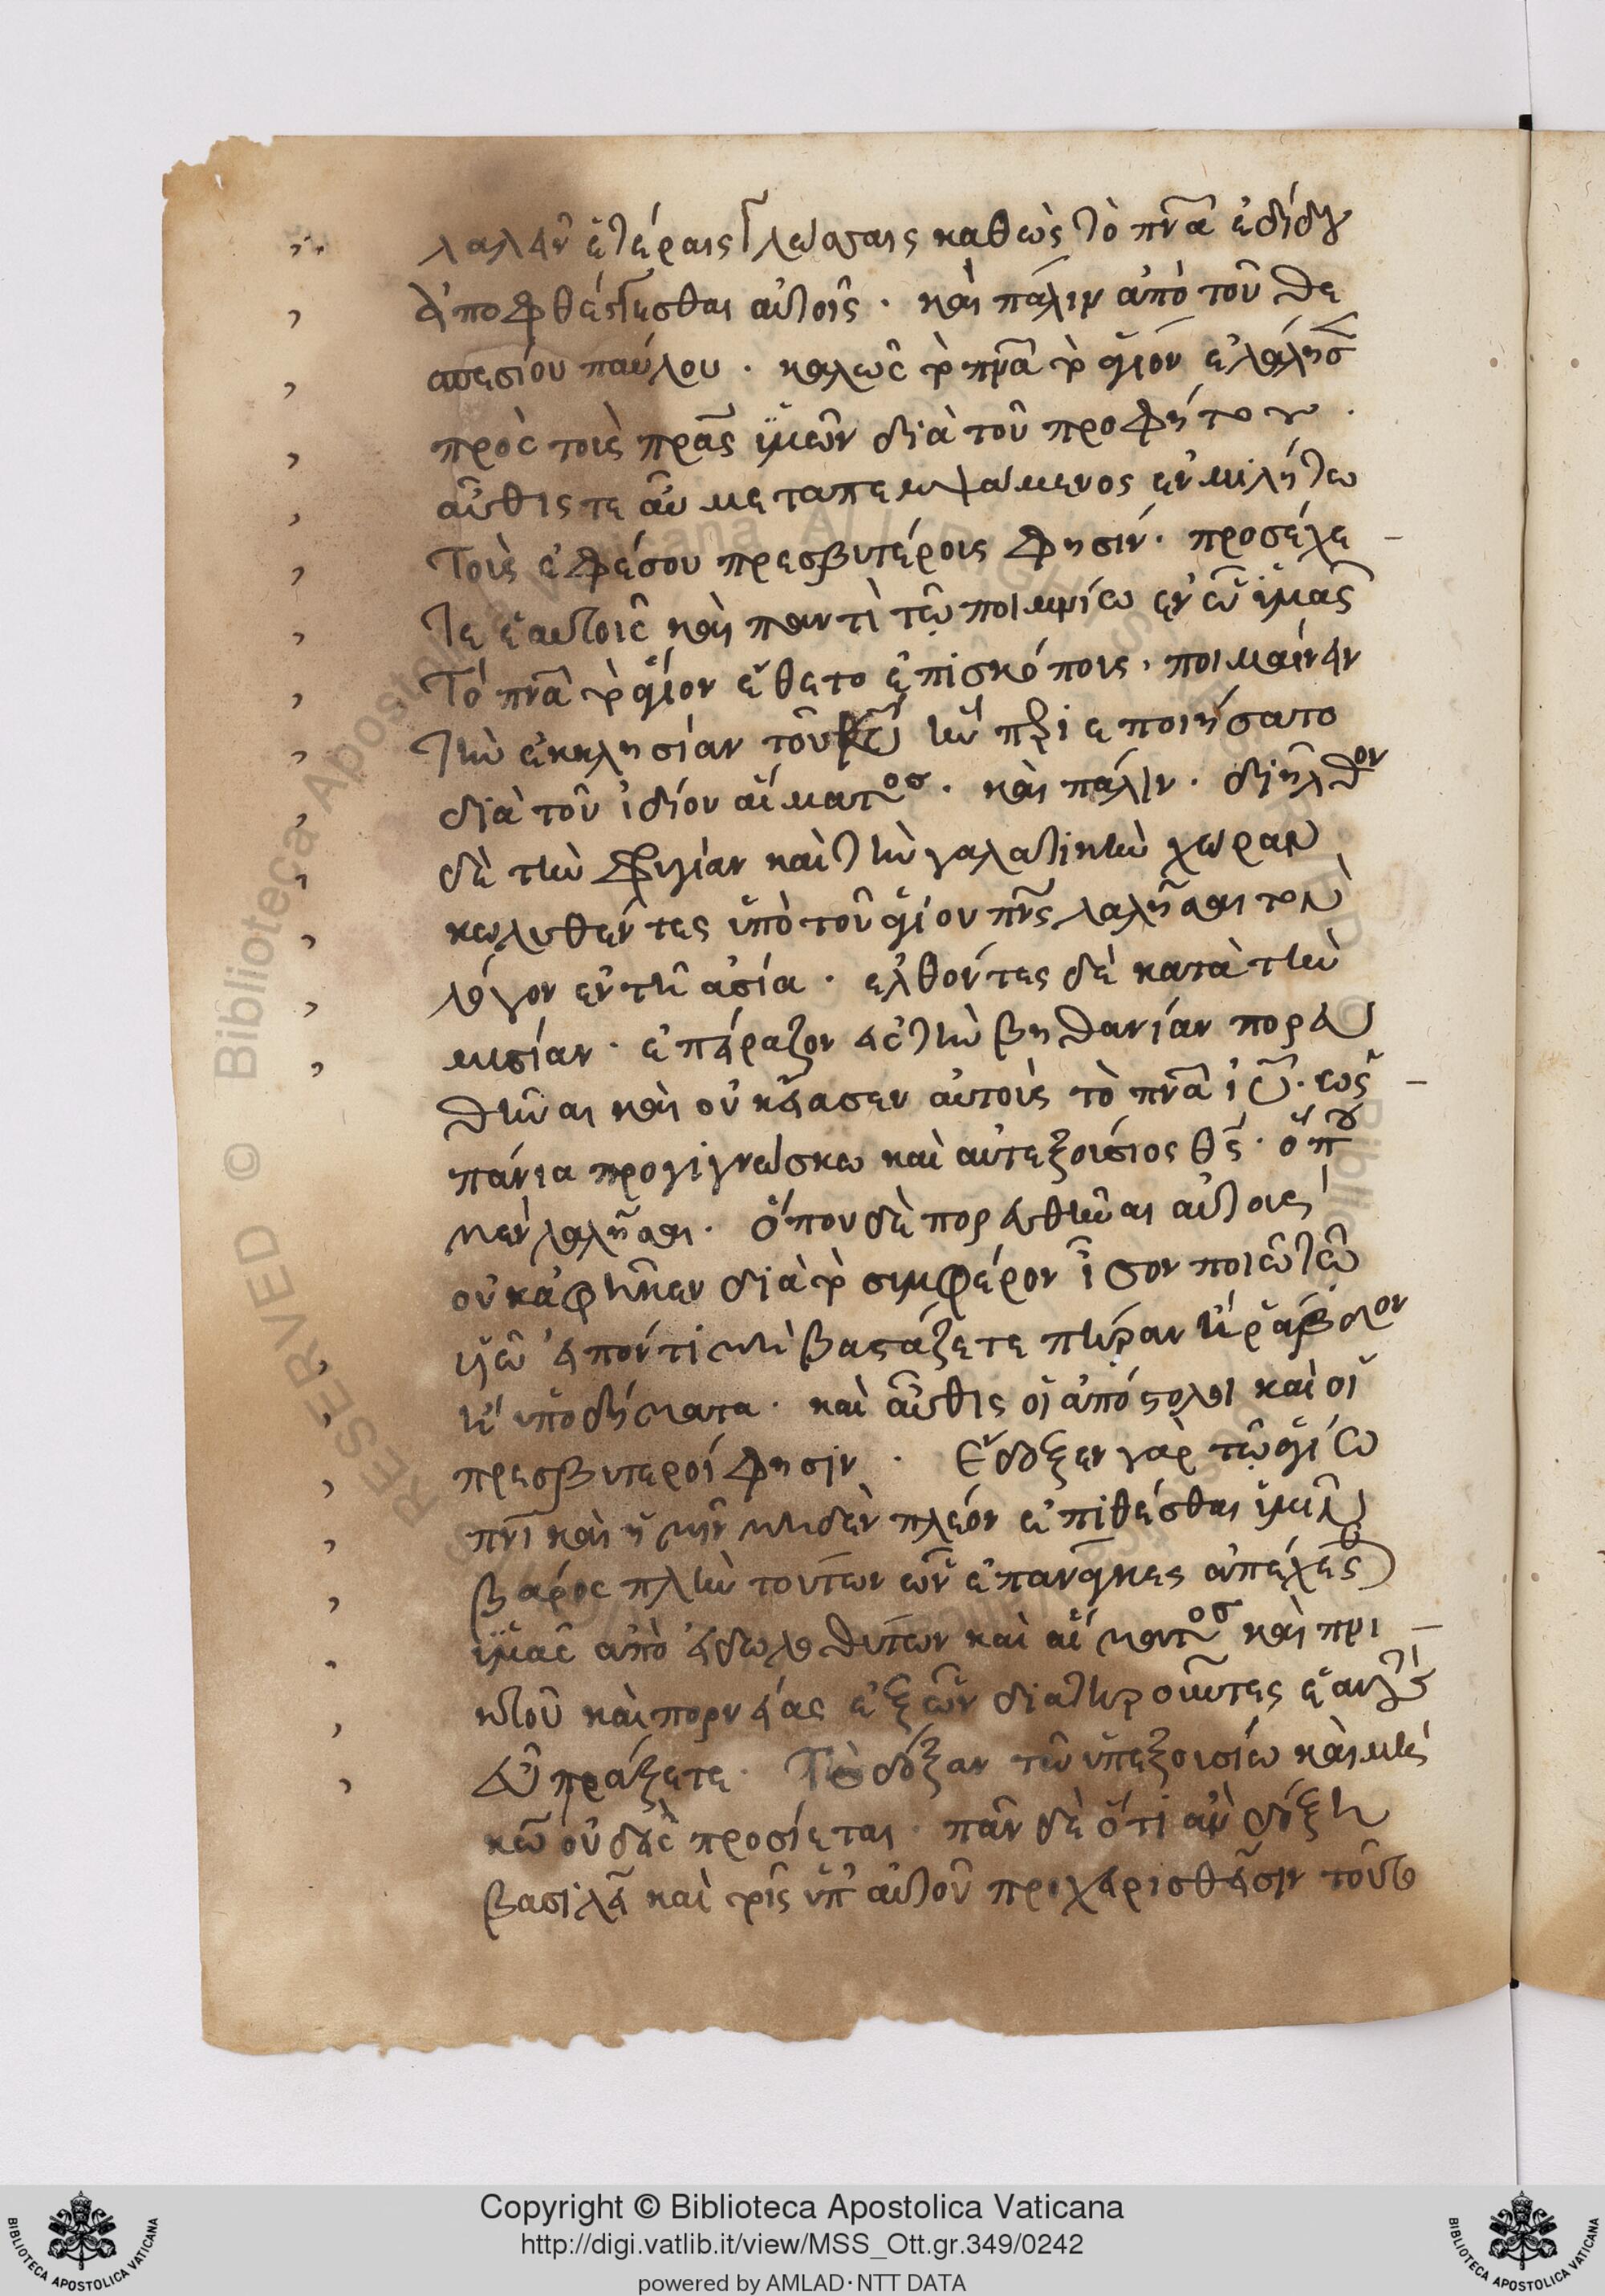 λαλεῖν ἑτέραις γλώσσαις καθὼς τὸ πνᾶ ἐδίδου
ἀποφθέγγεσθαι αὐτοῖς · καὶ πάλιν ἀπὸ τοῦ θε
σπεσίου παύλου · καλῶς τὸ πνᾶ τὸ ἅγιον ἐλάλησε
πρὸς τοὺς πρᾶς ὑμῶν διὰ τοῦ προφήτου ·
αὖθις τε αὖ μεταπεμψάμενος ἐν μιλήτω
Τοὺς ἐφέσου πρεσβυτέρους φησίν · προσέχε
τε ἑαυτοῖς καὶ παντὶ τῶ ποιμνίω ἐν ὧ ὑμᾶς
Τὸ πνᾶ τὸ ἅγιον ἔθετο ἐπισκόπους · ποιμαίνειν
τὴν ἐκκλησίαν τοῦ ἣν περιεποιήσατο
διὰ τοῦ ἰδίου αἵματος · καὶ πάλιν · διῆλθον
δὲ τὴν φρυγίαν καὶ τὴν γαλατικὴν χώραν
κωλυθέντες ὑπὸ τοῦ ἁγίου πνς λαλῆσαι τὸν
λόγον ἐν τῆ ἀσία · ἐλθόντες δὲ κατὰ τὴν
μυσίαν · ἐπείραζον εἰς τὴν βηθανίαν πορευ
θῆναι καὶ οὐκ εἴασεν αὐτοὺς τὸ πνᾶ ιυ · ὡς
πάντα προγιγνώσκω καὶ αὐτεξούσιος θς · ὅπου
μὲν λαλῆσαι · ὅπου δὲ πορευθῆναι αὐτοὺς
οὐκ ἀφῆκεν διὰ τὸ συμφέρον ἴσον ποιῶ τῶ
υἱῶ εἰπόντι μὴ βαστάζετε πήραν ἢ ῥάβδον
ἢ ὑποδήματα · καὶ αὖθις οἱ ἀπόστολοι καὶ οἱ
πρεσβυτεροί φησιν · Ἔδοξεν γὰρ τῶ ἁγίω
πνι καὶ ἡμῖν μηδὲν πλέον ἐπιθέσθαι ὑμῖν
βάρος πλὴν τούτων ὧν ἐπανάγκες ἀπέχεσθ
ὑμᾶς ἀπὸ εἰδωλοθύτων καὶ αἵματος καὶ πνι
κτοῦ καὶ πορνείας ἐξ ὧν διατηροῦντες ἑαυτοὺς
εὖ πράξετε · δόξαν τῶ ὑπεξουσίω καὶ μὴ
οὐδεὶς προσίεται · πᾶν δὲ ὅτι ἂν δόξη
βασιλεῖ καὶ τοῖς ὑπ' αὐτοῦ προχειρισθεῖσιν τοῦτο
Copyright © Biblioteca Apostolica Vaticana
http://digi.vatlib.it/view/MSS_Ott.gr.349/0242
powered by AMLAD·NTT DATA